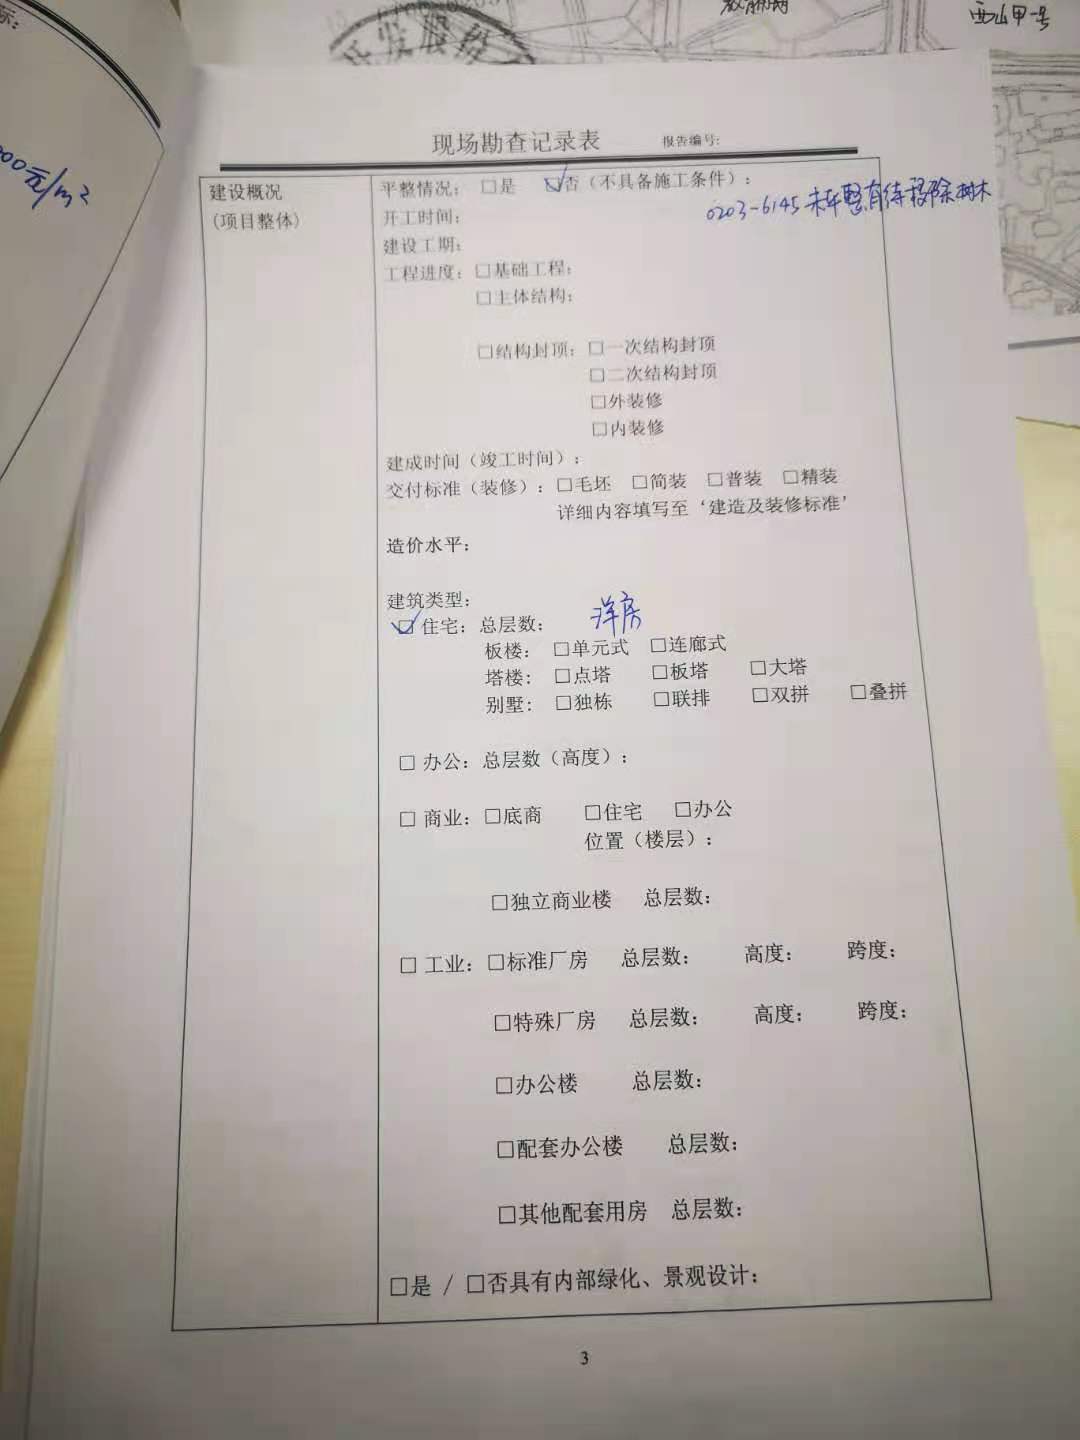 标:
000元/m²
开发股份
西山甲一号
现场勘查记录表 报告编号:
建设概况
(项目整体)
平整情况: □是 ☑否(不具备施工条件):
0203-6145未平整有待移除树木
开工时间:
建设工期:
工程进度: □基础工程;
□主体结构;
□结构封顶: □一次结构封顶
□二次结构封顶
□外装修
□内装修
建成时间(竣工时间):
交付标准(装修): □毛坯 □简装 □普装 □精装
详细内容填写至‘建造及装修标准’
造价水平:
建筑类型:
☑住宅: 总层数: 洋房
板楼: □单元式 □连廊式
塔楼: □点塔 □板塔 □大塔
别墅: □独栋 □联排 □双拼 □叠拼
□ 办公: 总层数(高度):
□ 商业: □底商 □住宅 □办公
位置(楼层):
□独立商业楼 总层数:
□ 工业: □标准厂房 总层数: 高度: 跨度:
□特殊厂房 总层数: 高度: 跨度:
□办公楼 总层数:
□配套办公楼 总层数:
□其他配套用房 总层数:
□是 / □否具有内部绿化、景观设计:
3